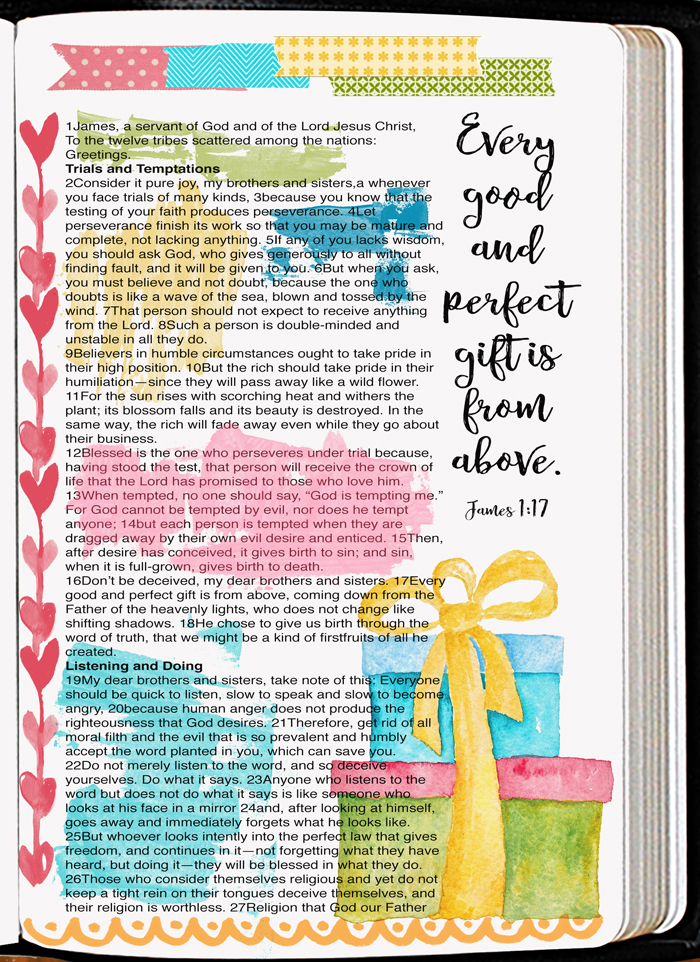 1James, a servant of God and of the Lord Jesus Christ,
To the twelve tribes scattered among the nations:
Greetings.
Trials and Temptations
2Consider it pure joy, my brothers and sisters,a whenever
you face trials of many kinds, 3because you know that the
testing of your faith produces perseverance. 4Let
perseverance finish its work so that you may be mature and
complete, not lacking anything. 5If any of you lacks wisdom,
you should ask God, who gives generously to all without
finding fault, and it will be given to you. 6But when you ask,
you must believe and not doubt, because the one who
doubts is like a wave of the sea, blown and tossed by the
wind. 7That person should not expect to receive anything
from the Lord. 8Such a person is double-minded and
unstable in all they do.
9Believers in humble circumstances ought to take pride in
their high position. 10But the rich should take pride in their
humiliation—since they will pass away like a wild flower.
11For the sun rises with scorching heat and withers the
plant; its blossom falls and its beauty is destroyed. In the
same way, the rich will fade away even while they go about
their business.
12Blessed is the one who perseveres under trial because,
having stood the test, that person will receive the crown of
life that the Lord has promised to those who love him.
13When tempted, no one should say, “God is tempting me.”
For God cannot be tempted by evil, nor does he tempt
anyone; 14but each person is tempted when they are
dragged away by their own evil desire and enticed. 15Then,
after desire has conceived, it gives birth to sin; and sin,
when it is full-grown, gives birth to death.
16Don’t be deceived, my dear brothers and sisters. 17Every
good and perfect gift is from above, coming down from the
Father of the heavenly lights, who does not change like
shifting shadows. 18He chose to give us birth through the
word of truth, that we might be a kind of firstfruits of all he
created.
Listening and Doing
19My dear brothers and sisters, take note of this: Everyone
should be quick to listen, slow to speak and slow to become
angry, 20because human anger does not produce the
righteousness that God desires. 21Therefore, get rid of all
moral filth and the evil that is so prevalent and humbly
accept the word planted in you, which can save you.
22Do not merely listen to the word, and so deceive
yourselves. Do what it says. 23Anyone who listens to the
word but does not do what it says is like someone who
looks at his face in a mirror 24and, after looking at himself,
goes away and immediately forgets what he looks like.
25But whoever looks intently into the perfect law that gives
freedom, and continues in it—not forgetting what they have
heard, but doing it—they will be blessed in what they do.
26Those who consider themselves religious and yet do not
keep a tight rein on their tongues deceive themselves, and
their religion is worthless. 27Religion that God our Father
Every
good
and
perfect
gift is
from
above.
James 1:17